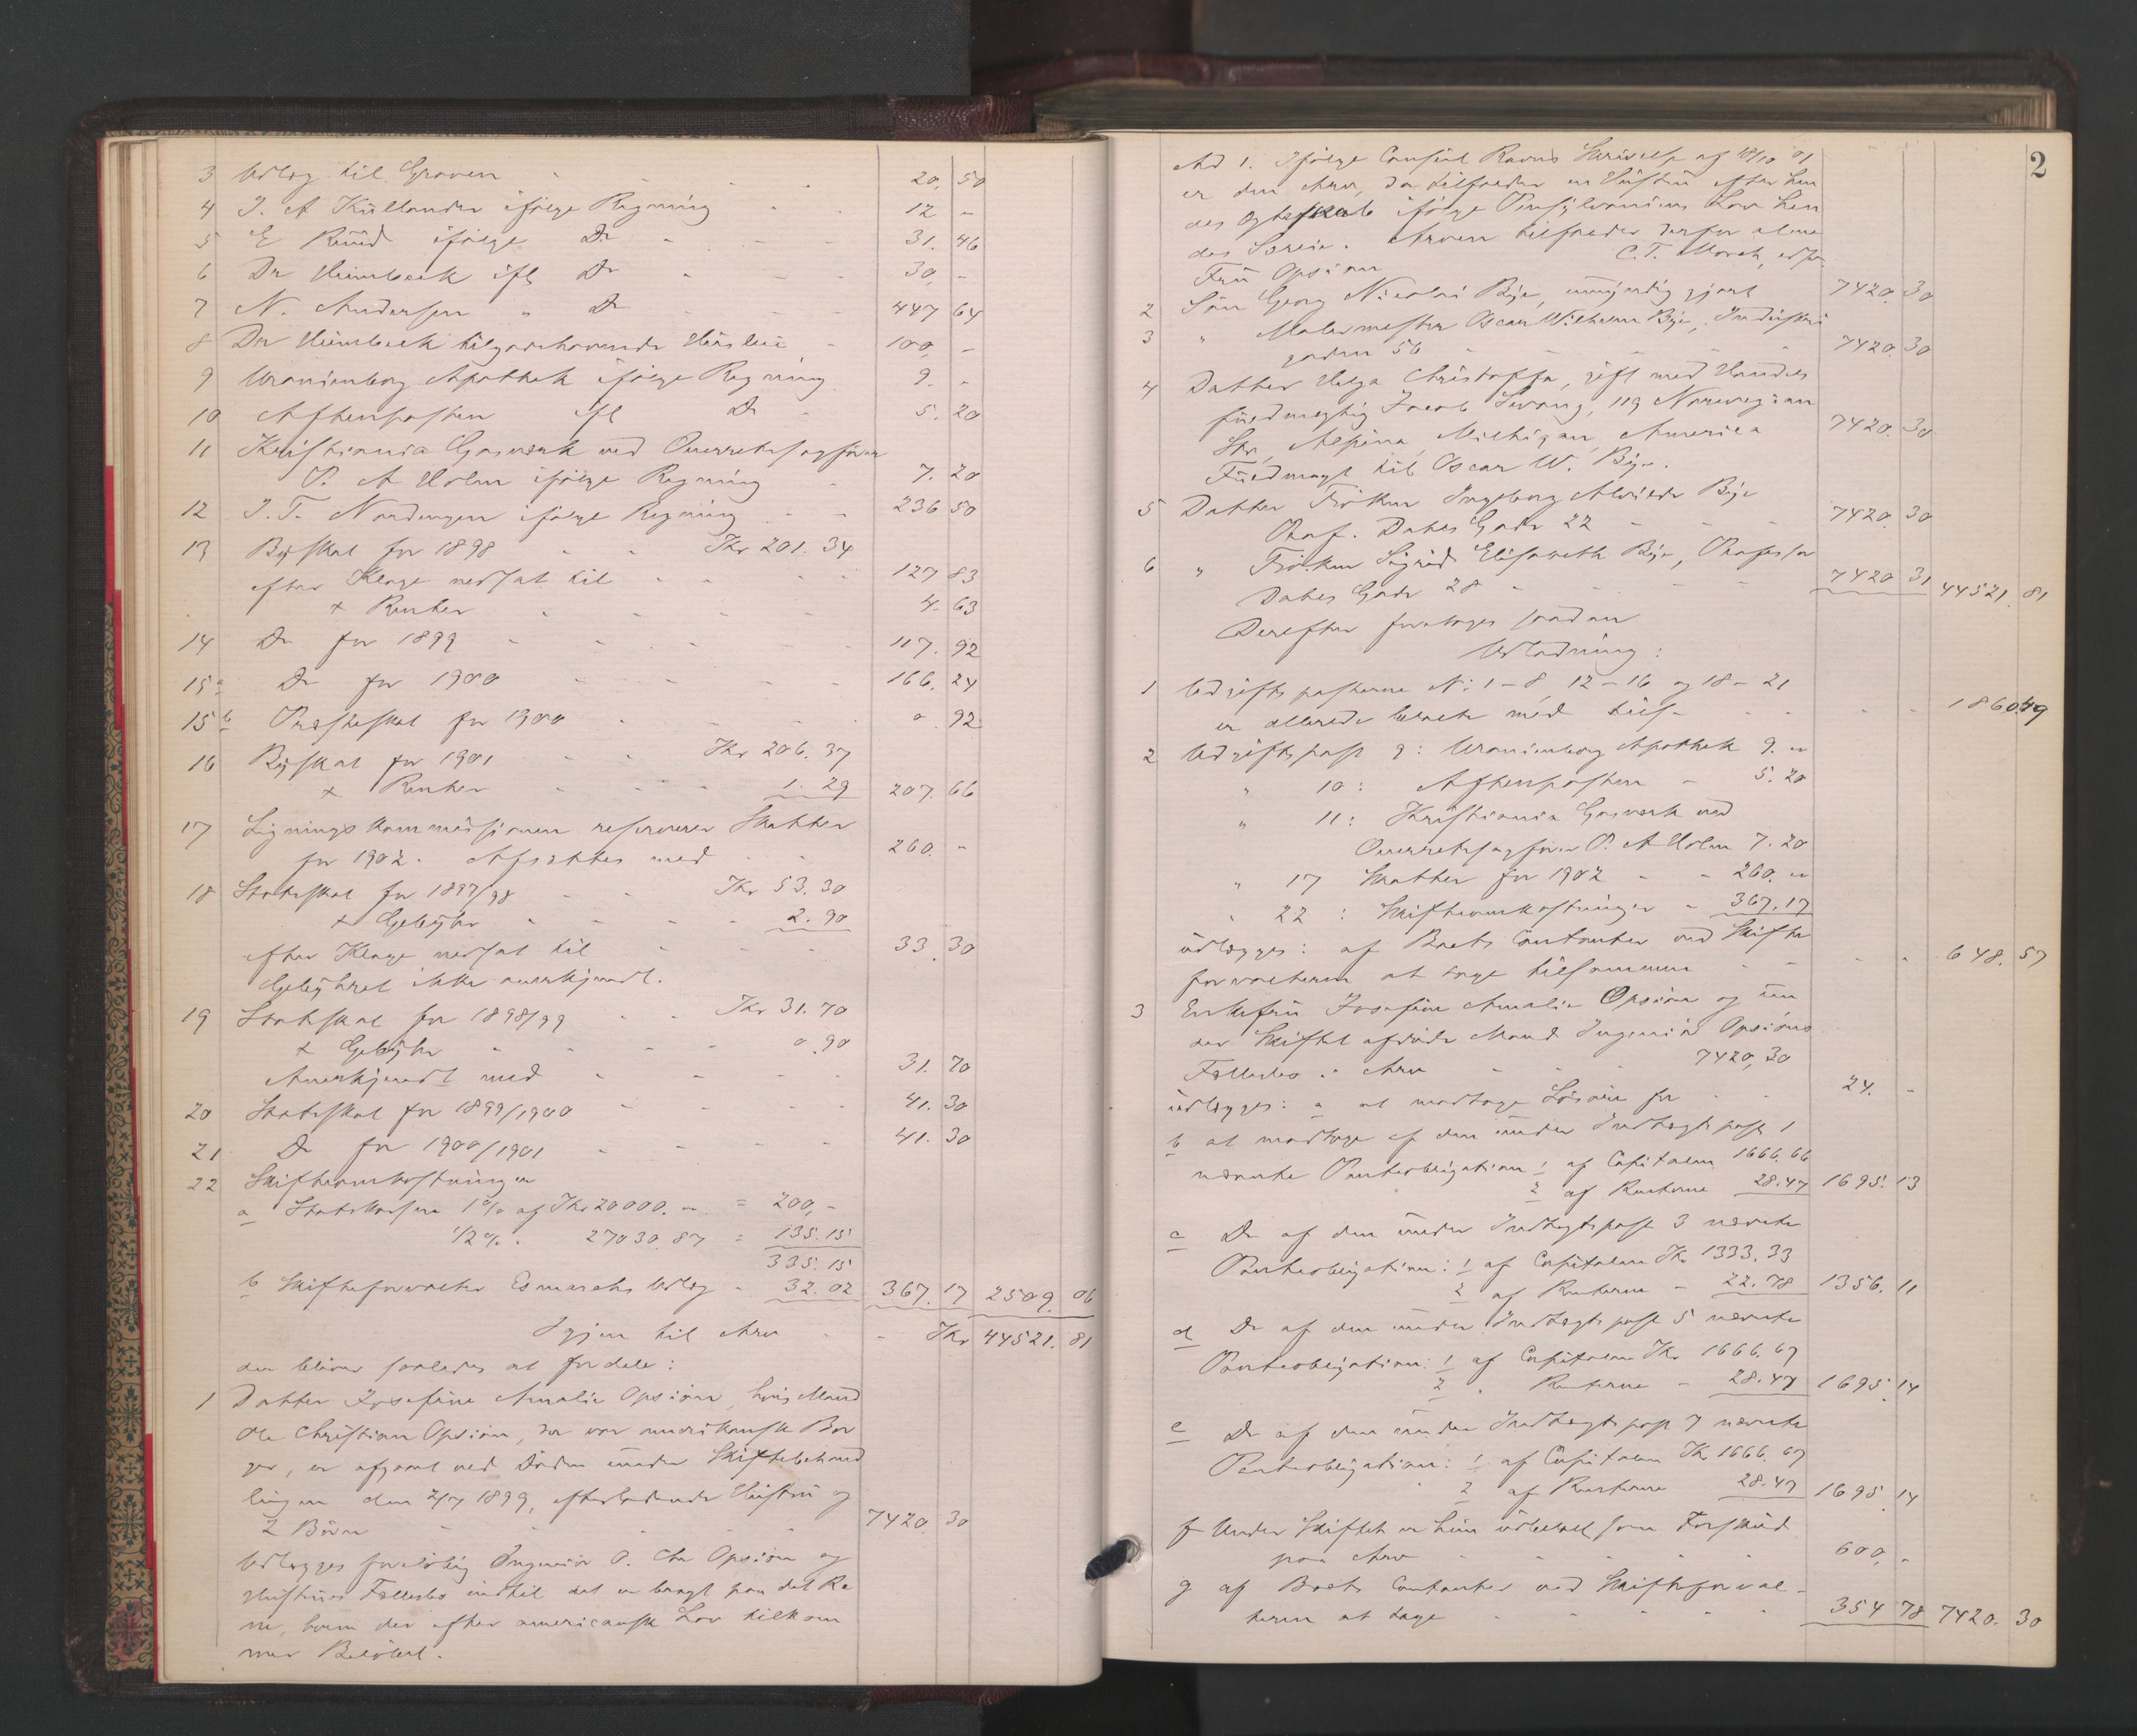 3 Udlæg til Graven - - - - 20, 50
4 J. A Küllander ifølge Regning - - 12 -
5 E Ruud ifølge Do - - - 31. 46
6 Dr Heimbeck ifl Do - - - 30, -
7 N. Andersen " Do - - - 447 64
8 Dr Heimbeck tilgodehavende Husleie - 100, -
9 Uranienborg Apothek ifølge Regning 9. -
10 Aftenposten ifl Do - 5. 20
11 Kristiania Gasværk ved Overretssagfører
P. A Holm ifølge Regning - 7. 20
12 J. T. Nordengen ifølge Regning - - 236 50
13 Byskat for 1898 - - Kr 201. 34
efter Klage nedsat til - - - - 127 83
+ Renter - - - - 4. 63
14 Do for 1899 - - - - - 117. 92
15a Do for 1900 - - - - 166. 24
15b Præsteskat for 1900 - - - - 0. 92
16 Byskat for 1901 - - Kr 206. 37
+ Renter - - - 1. 29 207. 66
17 Ligningskommissionen reserverer Skatter
for 1902. Afsættes med - - 260. -
18 Statsskat for 1897/98 - - Kr 53. 30
+ Gebyhr - - - - 2. 90
efter Klage nedsat til - - - 33. 30
Gebyhret ikke anerkjendt.
19 Statsskat for 1898/99 - - Kr 31. 70
+ Gebyhr - - - - 0. 90
Anerkjendt med - - - - 31. 70
20 Statsskat for 1899/1900 - - - - 41. 30
21 Do for 1900/1901 - - - - 41. 30
22 Skifteomkostninger
a Statskassen 1% af Kr 20000. - = 200, -
1/2 % " 27030. 87 = 135. 15
335. 15
b Skifteforvalter Esmarchs Udlæg - 32. 02 367. 17 2509. 06
Igjen til Arv - - Kr 44521. 81
der bliver saaledes at fordele:
1 Datter Josefine Amalie Opsion, hvis Mand
Ole Christian Opsion, der var amerikansk Bor
ger, er afgaaet ved Døden under Skiftebehand
lingen den 2/7 1899, efterladende Hustru og
2 Børn - - - - - 7420. 30
Udlægges foreløbig Ingeniør O. Chr Opsion og
Hustrues Fællesbo indtil det er bragt paa det Re
ne, hvem der efter americansk Lov tilkom
mer Beløbet.
2
Ad 1. Ifølge Consul Ravns Skrivelse af 18/10 01
er den Arv, der tilfalder en Hustru efter hen
des Ægteskab ifølge Pensylvaniens Lov hen
des Særeie. Arven tilfalder derfor alene
Fru Opsion C. T. Morch,
2 Søn Georg Nicolai Bye, umyndiggjort 7420. 30
3 " Malermester Oscar Wilhelm Bye, Industri
gaden 56 - - - - 7420. 30
4 Datter Helga Christoffa, gift med Handels
fuldmægtig Jacob Svang, 119 Norwegian
Str, Alpena, Michigan, America 7420. 30
Fuldmagt til Oscar W. Bye.
5 Datter Frøken Ingeborg Alvilde Bye
Prof. Dahls Gade 22 - - - 7420. 30
6 " Frøken Sigrid Elisabeth Bye, Professor
Dahls Gade 28 - - - 7420. 31 44521. 81
Derefter foretoges saadan
Udlodning:
1 Udgiftsposterne No: 1-8, 12-16 og 18-21
er allerede betalte med tils - - - - 1860. 49
2 Udgiftspost 9: Uranienborg Apothek 9. "
" 10: Aftenposten - 5. 20
" 11: Kristiania Gasværk ved
Overretssagfører P. A Holm 7. 20
" 17 Skatter for 1902 - - 260. "
" 22: Skifteomkostninger - 367. 17
udlægges: af Boets Contanter ved Skifte
forvalteren at tage tilsammen - - - - 648. 57
3 Enkefru Josefine Amalie Opsion og un
der Skiftet afdøde Mand Ingeniør Opsions
Fællesbo i Arv - - - 7420, 30
udlægges: a at modtage Løsøre for - - 24. -
b at modtage af den under Indtægtspost 1
nævnte Pantobligation 1 af Capitalen 1666. 66
2 af Renterne 28. 47 1695. 13
c Do af den under Indtægtspost 3 nævnte
Pantobligation: 1 af Capitalen Kr 1333. 33
2 af Renterne - 22. 78 1356. 11
d Do af den under Indtægtspost 5 nævnte
Pantobligation: 1 af Capitalen Kr 1666. 67
2 " Renterne - 28. 47 1695 14
e Do af den under Indtægtspost 7 nævnte
Pantobligation: 1 af Capitalen Kr 1666. 67
2 af Renterne 28. 47 1695. 14
f Under Skiftet er hun udbetalt som Forskud
paa Arv - - - - - 600, -
g af Boets Contanter ved Skifteforval-
teren at tage - - - - - 354 78 7420. 30